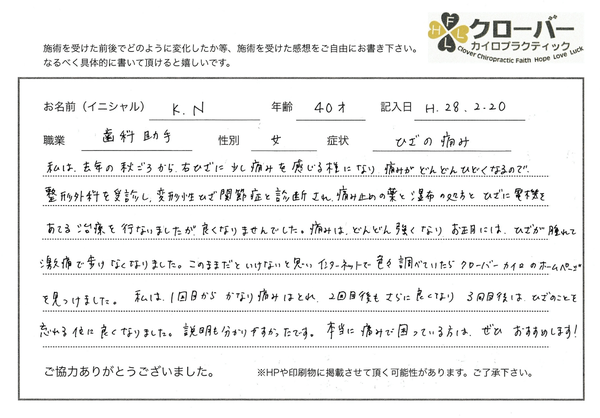 施術を受けた前後でどのように変化したか等、施術を受けた感想をご自由にお書き下さい。
なるべく具体的に書いて頂けると嬉しいです。
FHLL クローバー
カイロプラクティック
Clover Chiropractic Faith Hope Love Luck
お名前（イニシャル） K.N 年齢 40才 記入日 H.28.2.20
職業 歯科助手 性別 女 症状 ひざの痛み
私は、去年の秋ごろから、右ひざに少し痛みを感じる様になり 痛みがどんどんひどくなるので、
整形外科を受診し、変形性ひざ関節症と診断され、痛み止めの薬と湿布の処方と ひざに電機を
あてる治療を行ないましたが良くなりませんでした。痛みは、どんどん強くなり お正月には、ひざが腫れて
激痛で歩けなくなりました。このままだといけないと思い インターネットで色々調べていたら クローバーカイロのホームページ
を見つけました。 私は、1回目から かなり痛みはとれ、2回目後もさらに良くなり 3回目後は、ひざのことを
忘れる位に良くなりました。説明も分かりやすかったです。本当に痛みで困っている方は、ぜひ おすすめします!
ご協力ありがとうございました。 ※HPや印刷物に掲載させて頂く可能性があります。ご了承下さい。